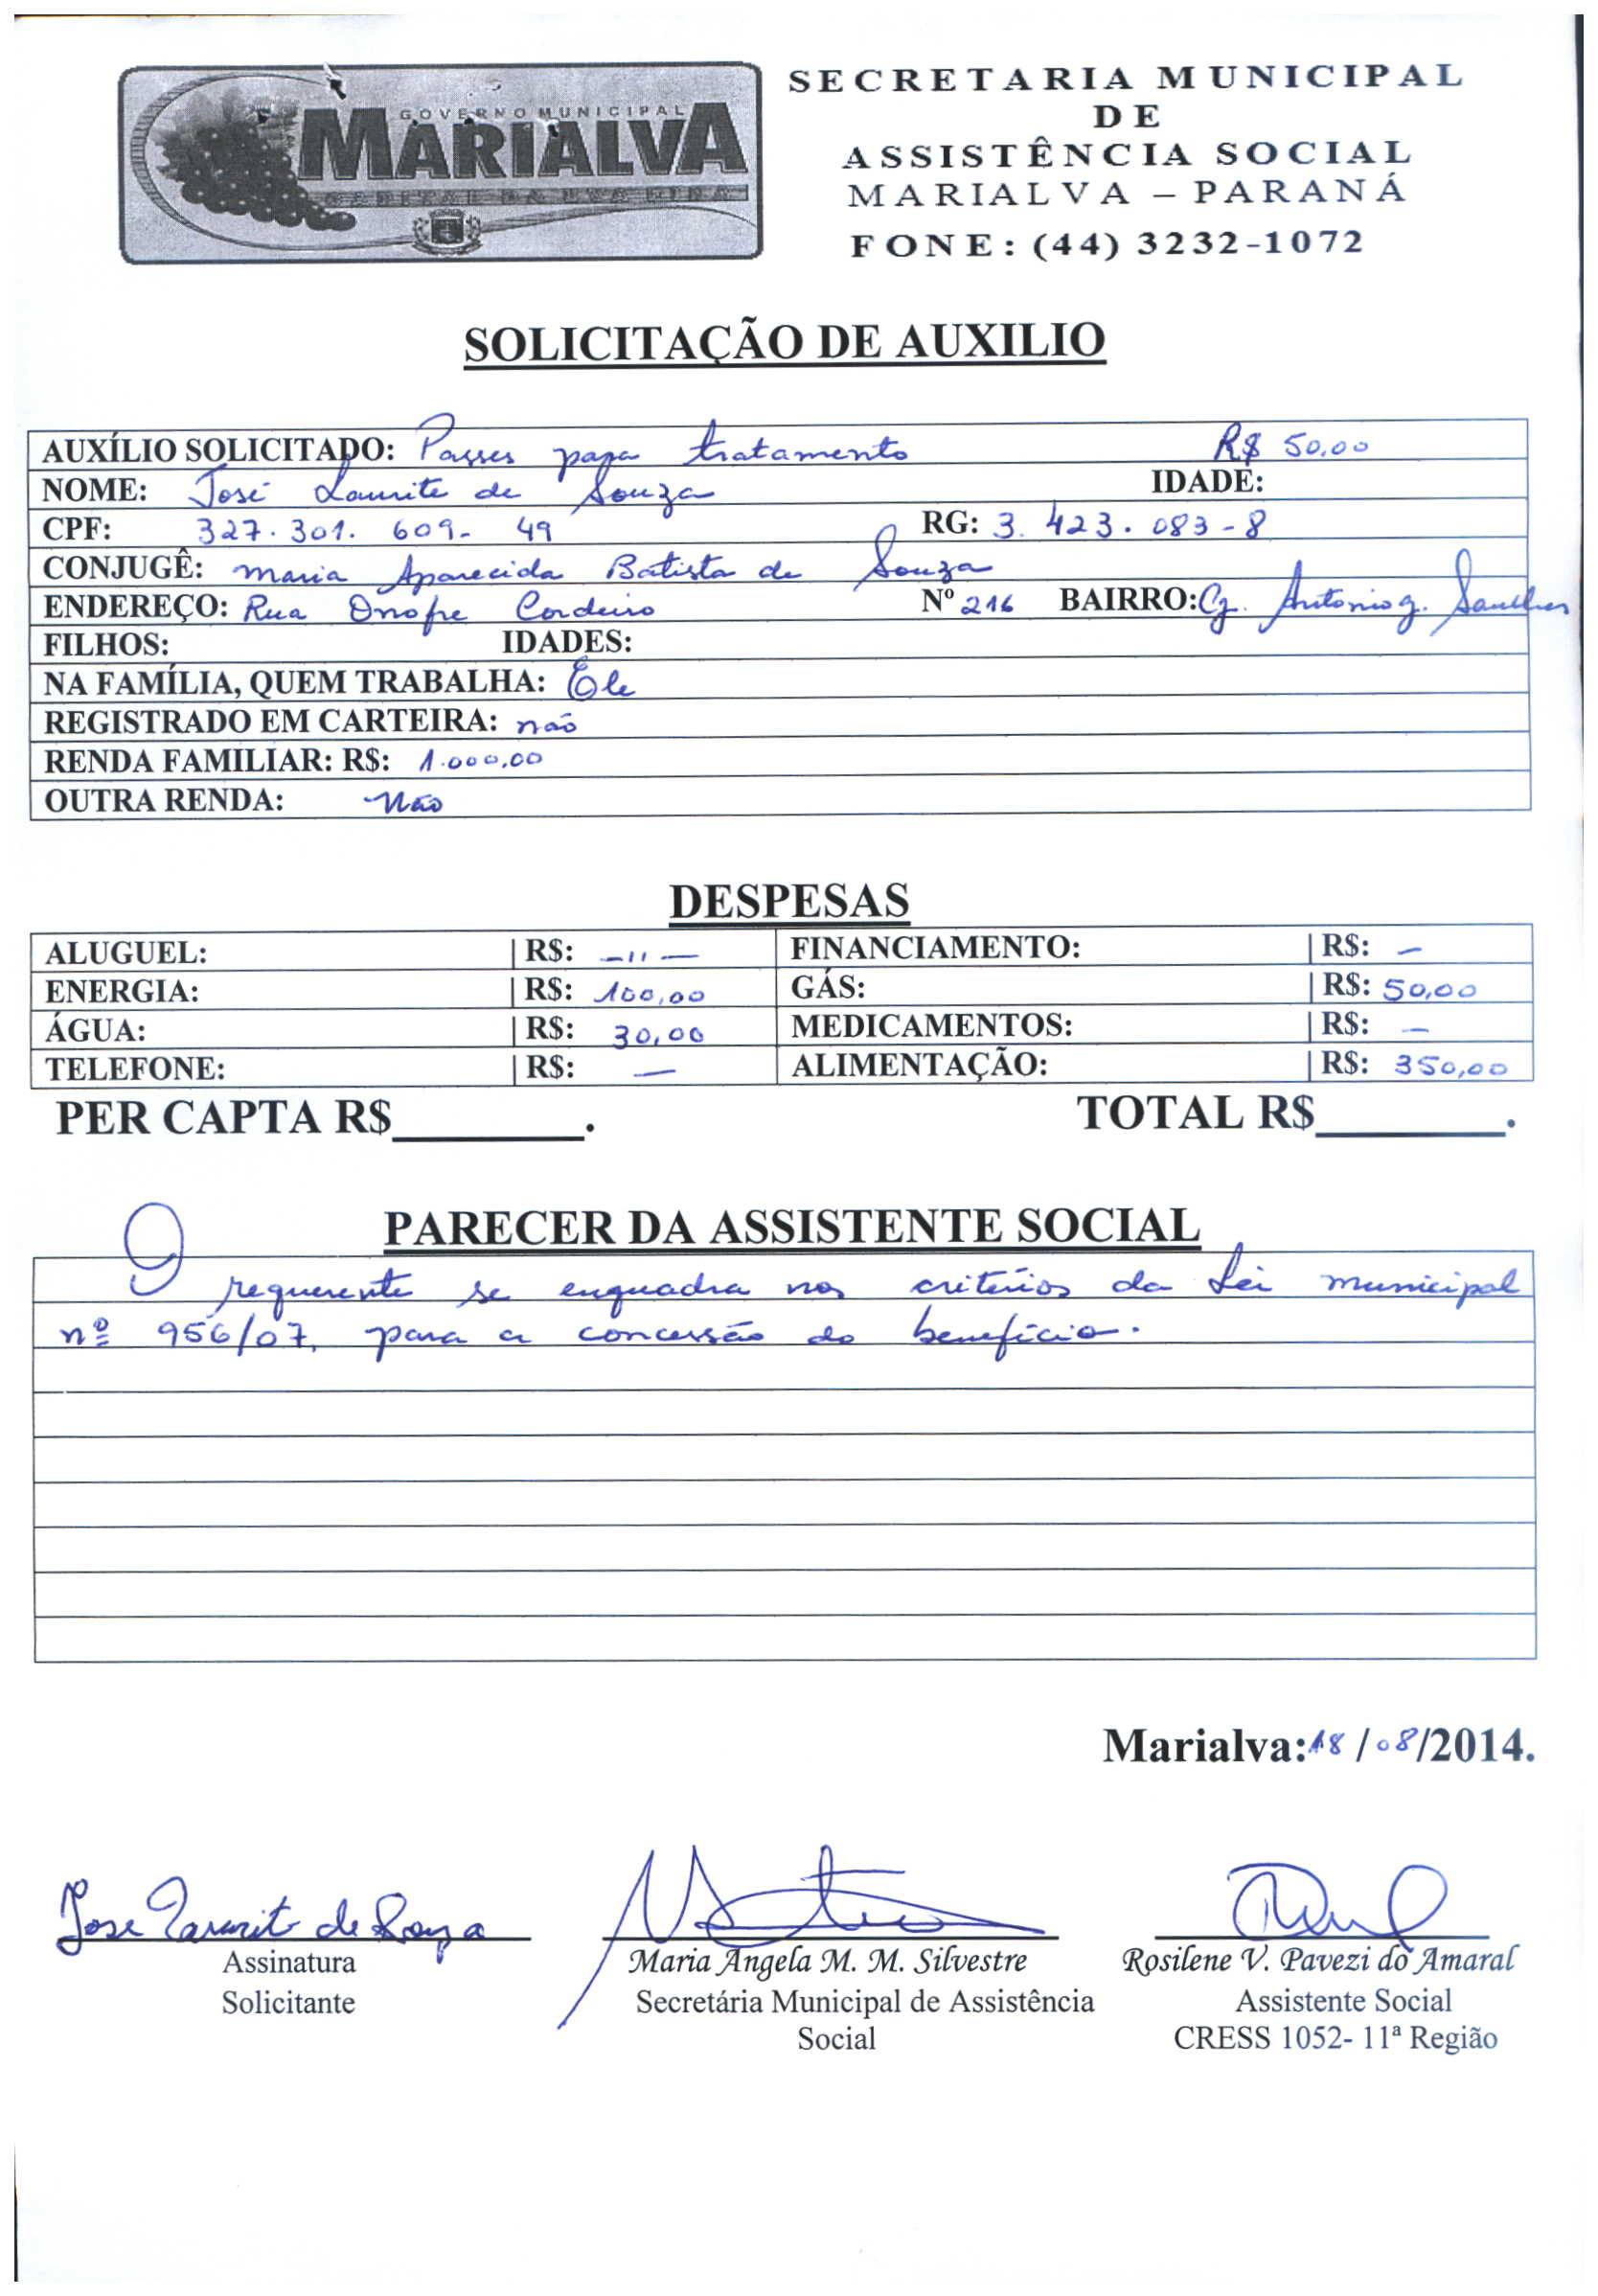 GOVERNO MUNICIPAL
MARIALVA
CAPITAL DA UVA FINA
SECRETARIA MUNICIPAL
DE
ASSISTÊNCIA SOCIAL
MARIALVA – PARANÁ
FONE: (44) 3232-1072
SOLICITAÇÃO DE AUXILIO
AUXÍLIO SOLICITADO: Passes para tratamento R$ 50,00
NOME: José Laurite de Souza IDADE:
CPF: 327.301.609-49 RG: 3.423.083-8
CONJUGÊ: Maria Aparecida Batista de Souza
ENDEREÇO: Rua Onofre Cordeiro Nº 216 BAIRRO: Cj. Antonio g.
FILHOS: IDADES:
NA FAMÍLIA, QUEM TRABALHA: Ele
REGISTRADO EM CARTEIRA: não
RENDA FAMILIAR: R$: 1.000,00
OUTRA RENDA: Não
DESPESAS
ALUGUEL: R$: —11— FINANCIAMENTO: R$: —
ENERGIA: R$: 100,00 GÁS: R$: 50,00
ÁGUA: R$: 30,00 MEDICAMENTOS: R$: —
TELEFONE: R$: — ALIMENTAÇÃO: R$: 350,00
PER CAPTA R$________. TOTAL R$________.
PARECER DA ASSISTENTE SOCIAL
O requerente se enquadra nos critérios da Lei municipal
nº 956/07, para a concessão do benefício.
Marialva: 18/08/2014.
Jose de Souza
Assinatura
Solicitante
Maria Ângela M. M. Silvestre
Secretária Municipal de Assistência
Social
Rosilene V. Pavezi do Amaral
Assistente Social
CRESS 1052- 11ª Região